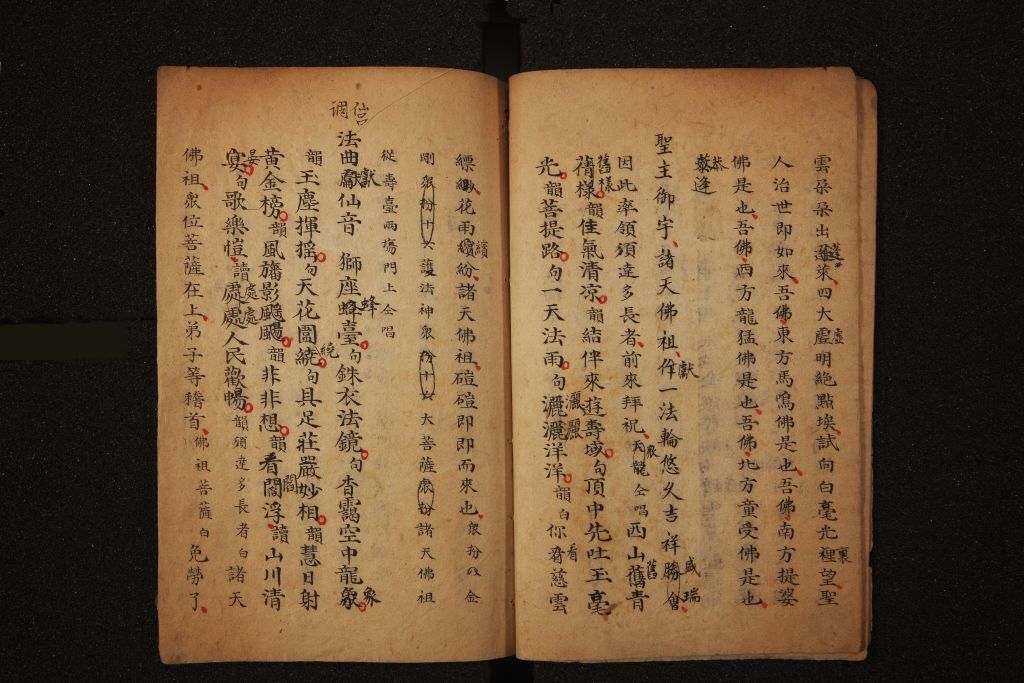 雲朶朶出蓬萊四大虛明絕點埃試向白毫光裡望聖
人治世即如來吾佛東方馬鳴佛是也吾佛南方提婆
佛是也吾佛西方龍猛佛是也吾佛北方童受佛是也
恭逢
聖主御宇諸天佛祖獻一法輪悠久吉祥勝會盛瑞
因此率領須達多長者前來拜祝天龍眾仝唱西山舊青
舊樣韻佳氣清凉韻結伴來遊壽域句頂中先吐玉毫
光韻菩提路句一天法雨句灑灑洋洋韻白你看齊慈雲
縹緲花雨繽紛諸天佛祖磑磑即即而來也眾扮金
剛眾扮十六護法神眾扮十六大菩薩眾扮諸天佛祖
從壽臺兩塲門上仝唱
仙呂調
法曲獻仙音獅座蜂臺句銖衣法鏡句杳靄空中龍象
韻玉塵揮搖句天花圍繞句具足莊嚴妙相韻慧日射
黃金榜韻風旛影颺颺韻非非想韻看閻浮讀山川清
晏句歌樂愷讀處處人民歡暢韻須達多長者白諸天
佛祖眾位菩薩在上弟子等稽首佛祖菩薩白免勞了